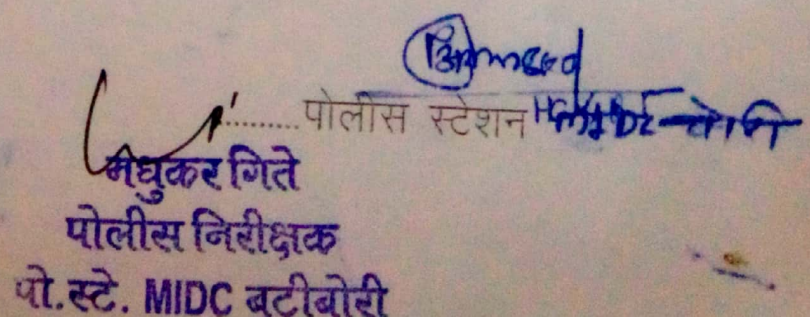 ......... पोलीस स्टेशन
मधुकर गिते
पोलीस निरीक्षक
पो.स्टे. MIDC बुटीबोरी